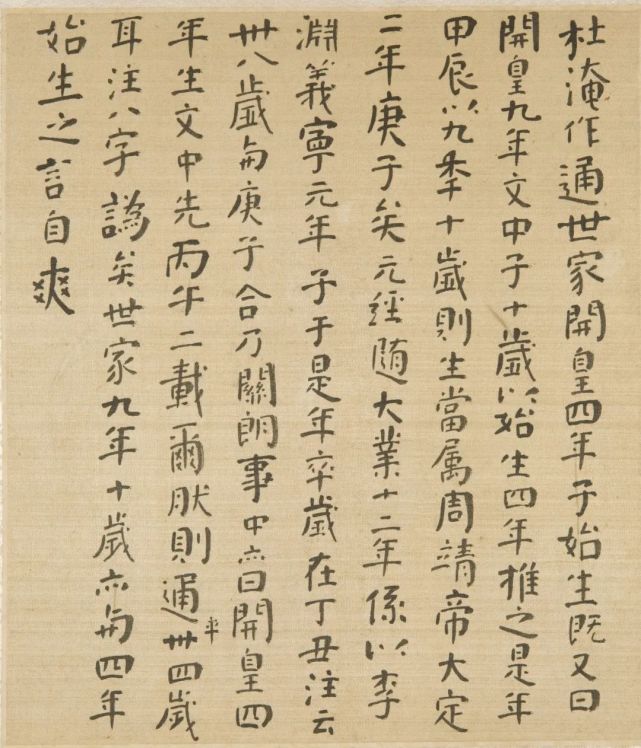 杜淹作通世家開皇四年子始生既又曰
開皇九年文中子十歲以始生四年推之是年
甲辰以九年十歲則生當属周靖帝大定
二年庚子矣元經随大業十二年係以李
淵義寧元年子于是年卒歲在丁丑注云
卅八歲與庚子合乃關朗事中亦曰開皇四
年生文中先丙午二載爾肰則通卒卅四歲
耳注八字譌矣世家九年十歲亦與四年
始生之言自爽